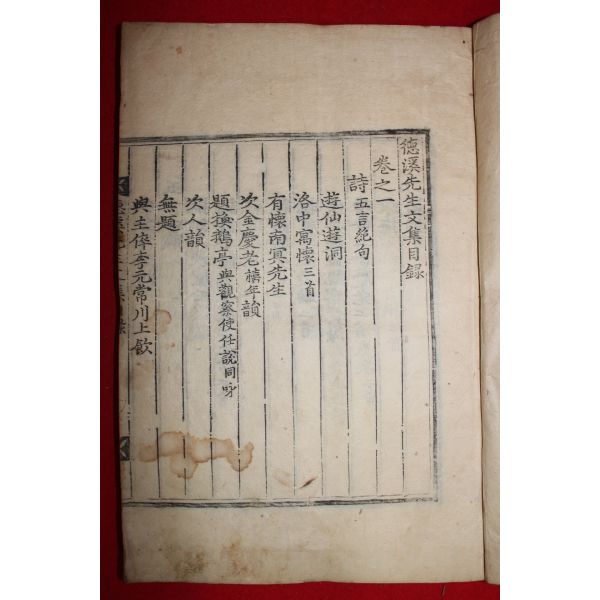 德溪先生文集目錄
卷之一
詩 五言絶句
遊仙遊洞
洛中寓懷 三首
有懷南冥先生
次金慶老 禧年 韻
題換鵝亭 與觀察使任說同咏
次人韻
無題
與主倅李元常川上飮